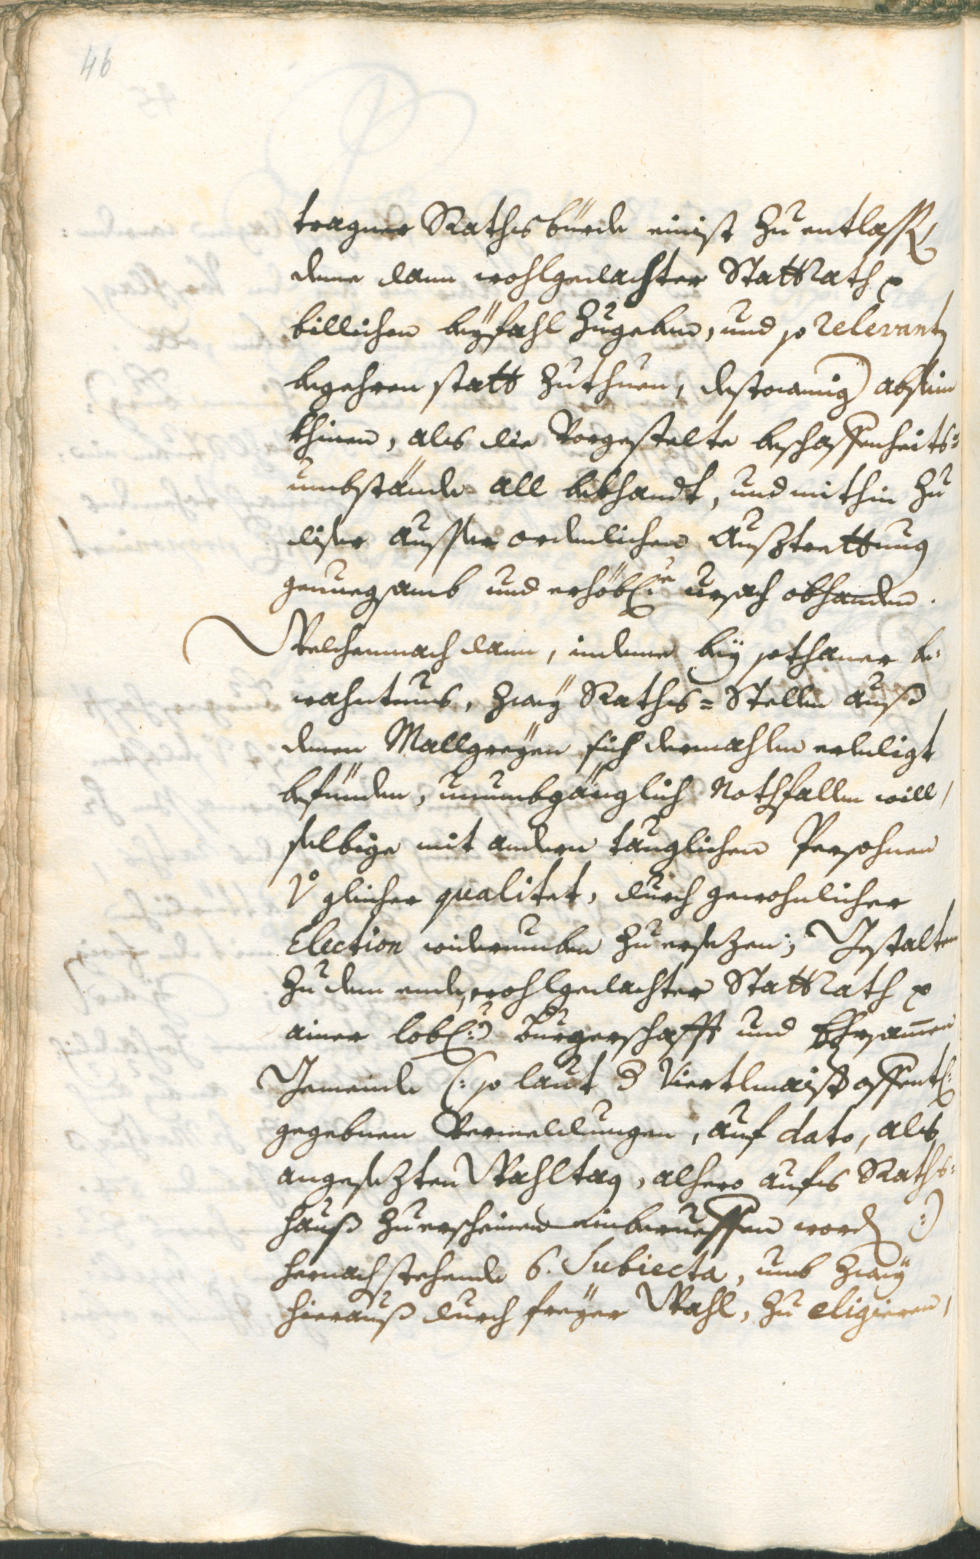 46
tragner Raths bürde einist zu entlassen,
deme dann wohlgedachter StattRath p
billichen beyfahl zugeben, und so relevant
begehren statt zuthuen, destoweniger absein
khinen, als die Vorgestelte beschaffenheits=
umbstände all bekhandt, und mithin zu
diser ausser ordenlichen Austrettung
genuegsamb und erhöbl: ursach obhanden.
Welchemnach dann, indeme bey sothaner be:
wahntnus, zwey Raths=Stellen auß
denen Mallgreyen sich dermahlen erledigt
befünden, unumbgänglich Nothfallen will,
selbige mit andern tauglichen Persohnen
gleicher qualitet, durch gewohnlicher
Election widerumben zuersezen; Gestalten
zu dem ende, wohlgedachter StattRath p
ainer lobl: Burgerschafft und Ehrsamen
Gemeinde (: so laut d Viertlmaister offentl:
gegebnen Vermeldungen, auf dato, als
angesezten Wahltag, alhero aufs Raths=
hauß zuerscheinen einberueffen word :)
hernachstehende 6. Subiecta, umb zwey
hierauß durch freyer Wahl, zu eligieren,